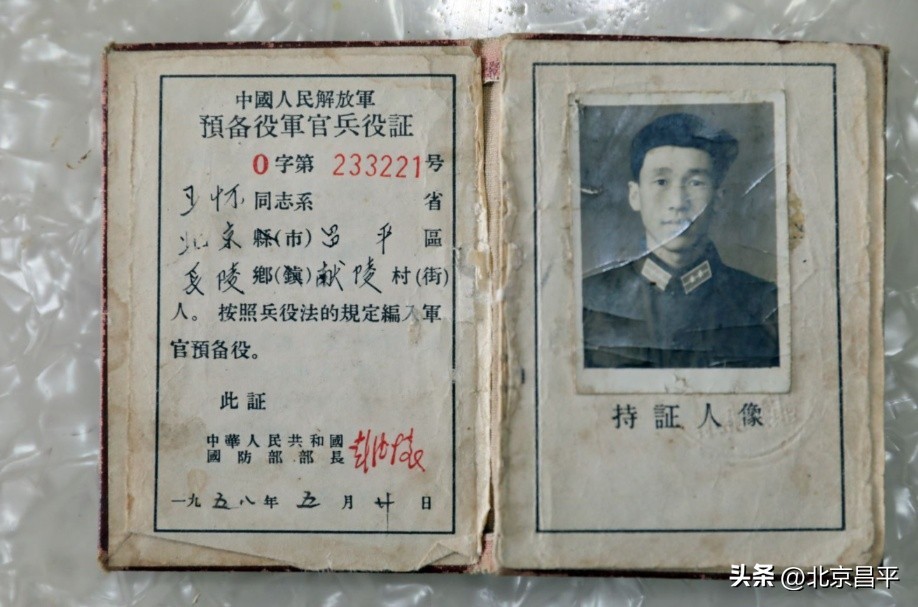 中國人民解放軍
預备役軍官兵役証
0字第 233221号
王怀同志系 省
北京縣(市)昌平區
長陵鄉(鎮)献陵村(街)
人。按照兵役法的規定編入軍
官預备役。
此証
中華人民共和國
國防部部長 彭德懷
一九五八年五月廿日
持証人像
头条 @北京昌平